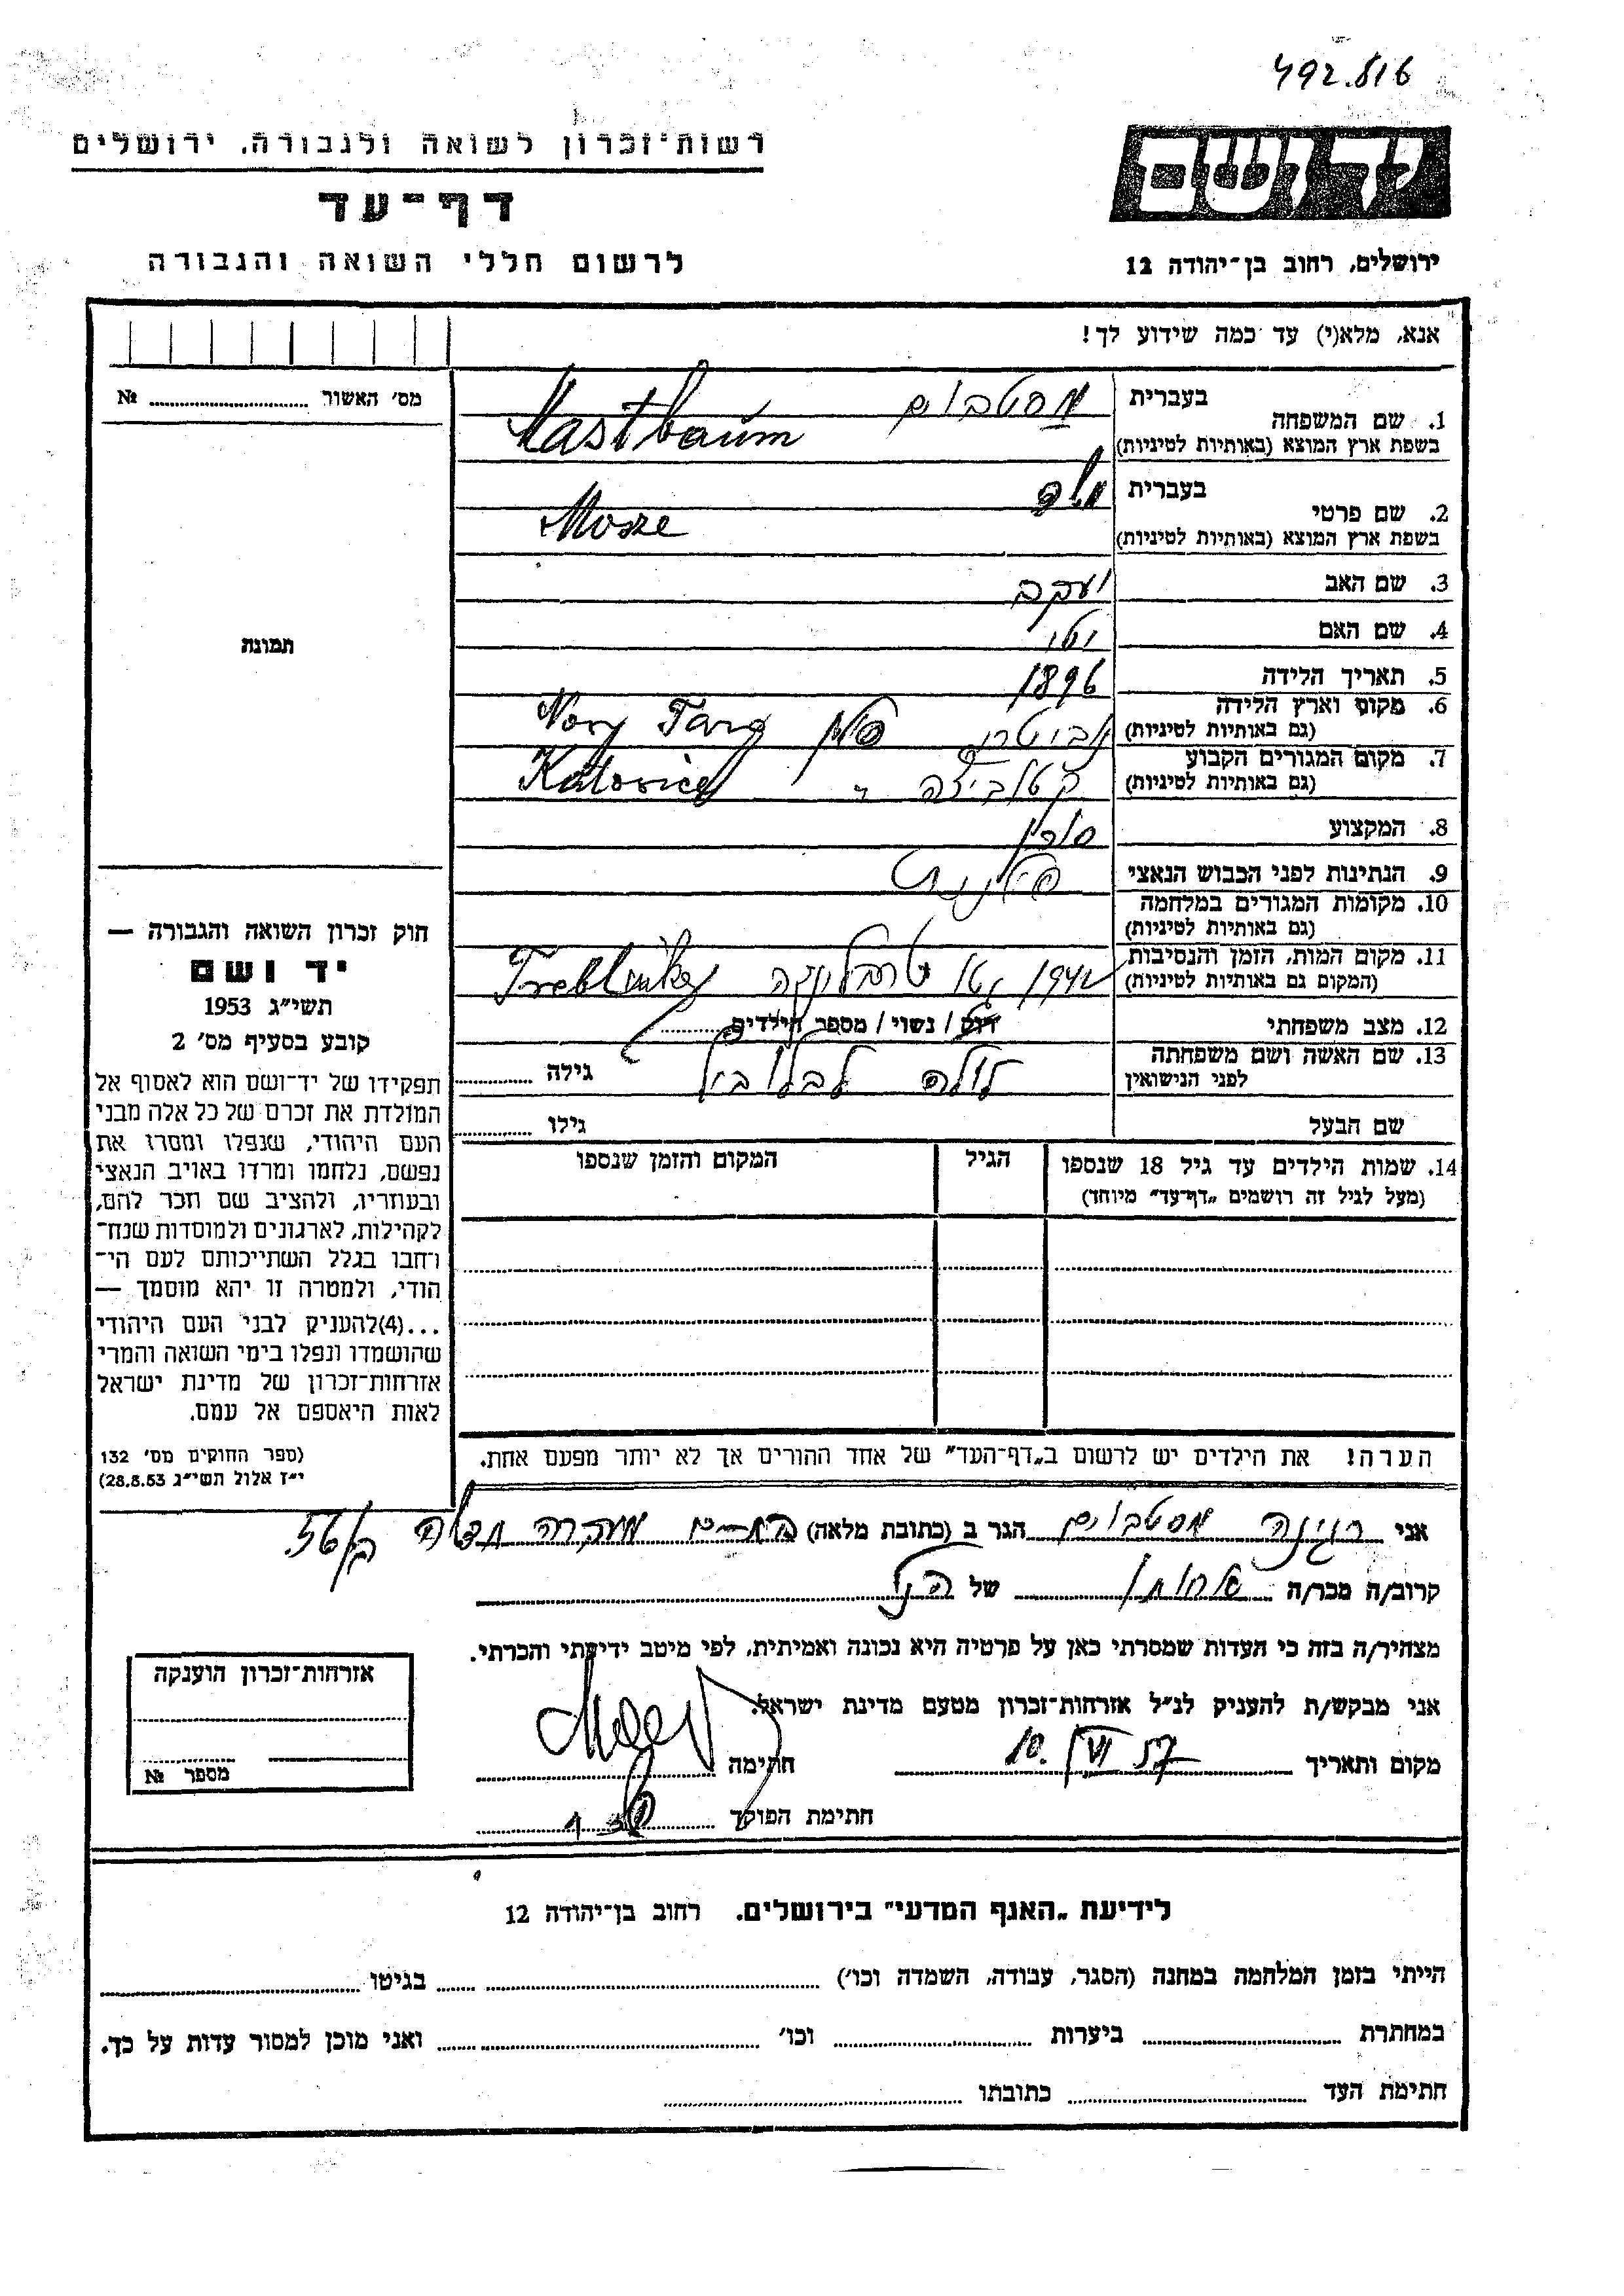 492.816
יד ושם
רשות־זכרון לשואה ולגבורה, ירושלים
דף־עד
לרשום חללי השואה והגבורה
ירושלים, רחוב בן־יהודה 12
אנא, מלא(י) עד כמה שידוע לך!
מס׳ האשור № 
תמונה
בעברית מסטבוים
1. שם המשפחה
בשפת ארץ המוצא (באותיות לטיניות) Mastbaum
בעברית משה
2. שם פרטי
בשפת ארץ המוצא (באותיות לטיניות) Mosze
3. שם האב יעקב
4. שם האם
5. תאריך הלידה 1896
6. מקום וארץ הלידה
(גם באותיות לטיניות) פולין Nory Targ
7. מקום המגורים הקבוע
(גם באותיות לטיניות) קטוביצה " Katovice
8. המקצוע סוכן
9. הנתינות לפני הכבוש הנאצי פולנית
10. מקומות המגורים במלחמה
(גם באותיות לטיניות)
11. מקום המות, הזמן והנסיבות
(המקום גם באותיות לטיניות) 1942 טרבלינקה Treblinka
12. מצב משפחתי רווק / נשוי / מספר הילדים
13. שם האשה ושם משפחתה
לפני הנישואין גילה
שם הבעל גילו
14. שמות הילדים עד גיל 18 שנספו הגיל המקום והזמן שנספו
(מעל לגיל זה רושמים „דף־עד״ מיוחד)
הערה! את הילדים יש לרשום ב„דף־העד״ של אחד ההורים אך לא יותר מפעם אחת.
חוק זכרון השואה והגבורה —
יד ושם
תשי״ג 1953
קובע בסעיף מס׳ 2
תפקידו של יד־ושם הוא לאסוף אל
המולדת את זכרם של כל אלה מבני
העם היהודי, שנפלו ומסרו את
נפשם, נלחמו ומרדו באויב הנאצי
ובעוזריו, ולהציב שם וזכר להם,
לקהילות, לארגונים ולמוסדות שנח־
רחבו בגלל השתייכותם לעם הי־
הודי, ולמטרה זו יהא מוסמך —
...(4)להעניק לבני העם היהודי
שהושמדו ונפלו בימי השואה והמרי
אזרחות־זכרון של מדינת ישראל
לאות היאספם אל עמם.
(ספר החוקים מס׳ 132
י״ז אלול תשי״ג 28.8.53)
אני רגינה מסטבוים הגר ב (כתובת מלאה)
קרוב/ה מכר/ה אחותו של הנ״ל
מצהיר/ה בזה כי העדות שמסרתי כאן על פרטיה היא נכונה ואמיתית, לפי מיטב ידיעתי והכרתי.
אני מבקש/ת להעניק לנ״ל אזרחות־זכרון מטעם מדינת ישראל.
מקום ותאריך 10. VI 57 חתימה
חתימת הפוקד
אזרחות־זכרון הוענקה
מספר №
לידיעת „האגף המדעי״ בירושלים, רחוב בן־יהודה 12
הייתי בזמן המלחמה במחנה (הסגר, עבודה, השמדה וכו׳) בגיטו
במחתרת ביערות וכו׳ ואני מוכן למסור עדות על כך.
חתימת העד כתובתו